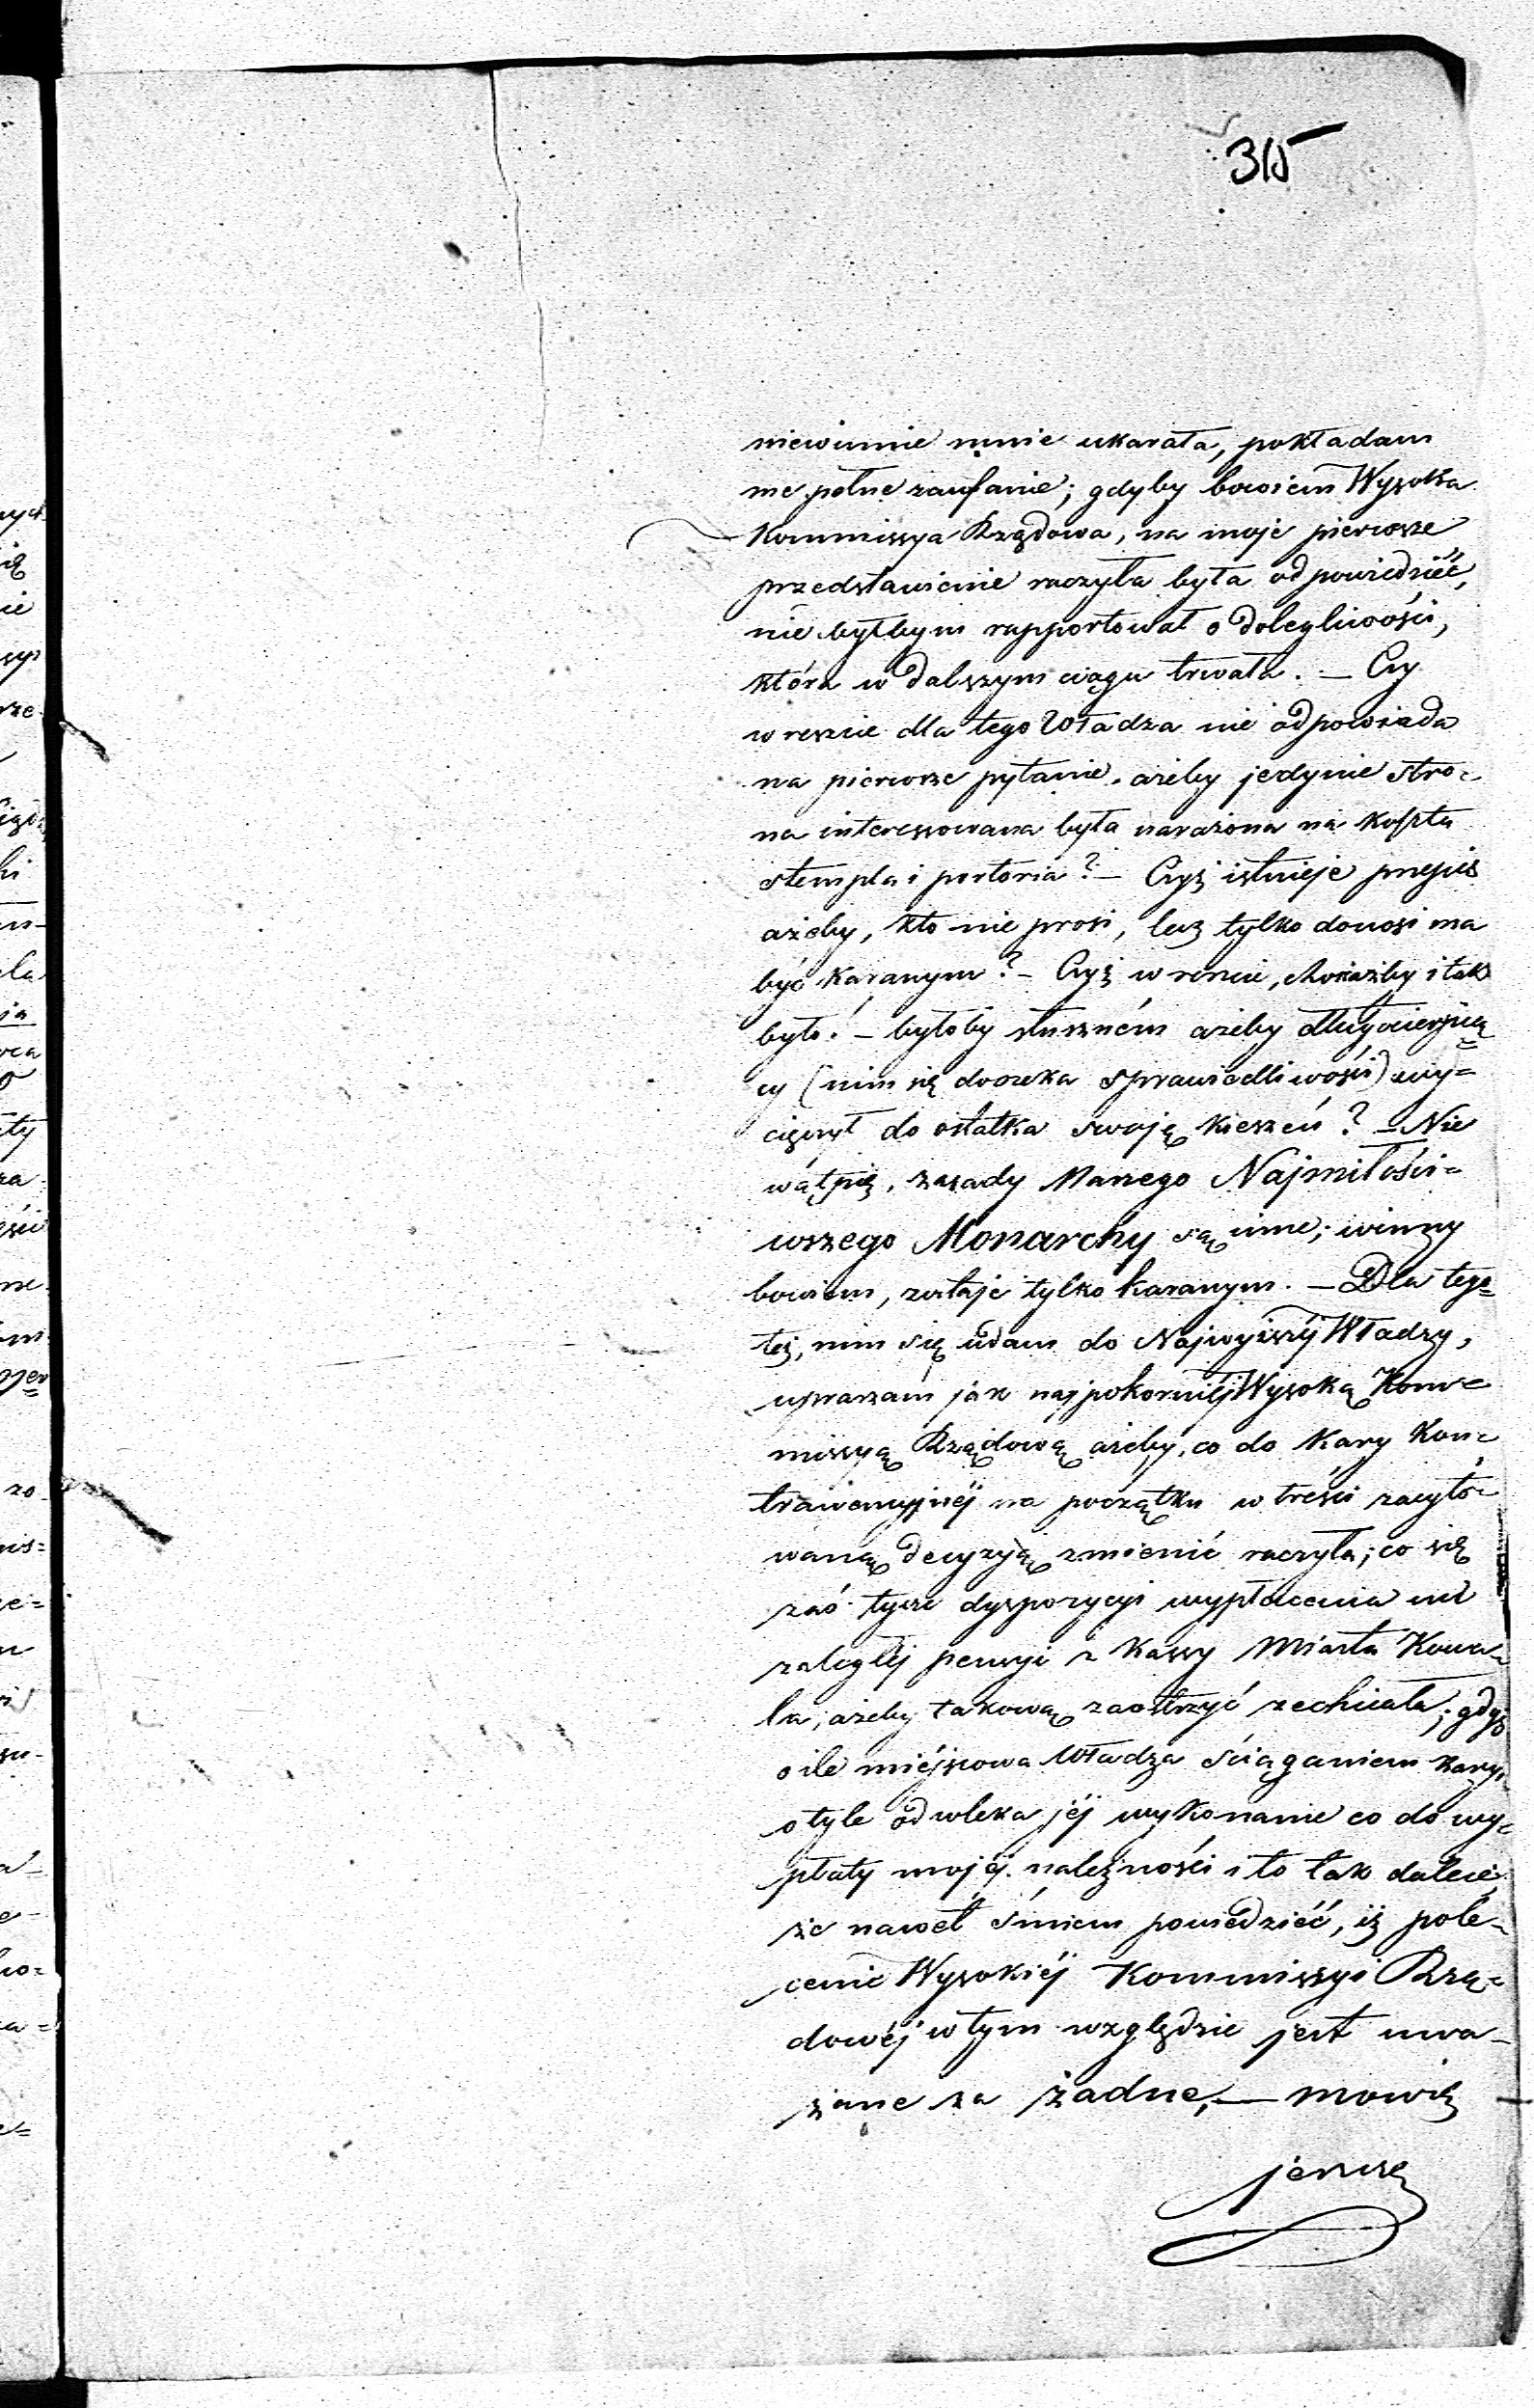 315
niewinnie mnie ukarała, pokładam
me pełne zaufanie; gdyby bowiem Wysoka
Kommissya Rządowa, na moje pierwsze
przedstawienie raczyła była odpowiedziéć,
nie byłbym rapportował o dolegliwości,
która w dalszym ciągu trwała. — Czy
wreszcie dla tego Władza nie odpowiada
na pierwsze pytanie, ażeby jedynie stro=
na interessowana była narażona na koszta
stempla i portoria? — Czyż istnieje przepis
ażeby, kto nie prosi, lecz tylko donosi ma
być karanym? — Czyż w reszcie, chociażby i tak
było! — byłoby słuszném ażeby długocierpią=
cy (nim się doczeka sprawiedliwości) wy=
cieńczył do ostatka swoję kieszeń? — Nie
wątpię, zasady Naszego Najmiłości=
wszego Monarchy są inne; winny
bowiem, zostaje tylko karanym. — Dla tego=
też, nim się udam do Najwyższéj Władzy,
upraszam jak najpokorniéj Wysoką Kom=
missyą Rządową ażeby, co do Kary Kon=
trawencyjnéj na początku w treści zacyto=
waną decyzyją zmienić raczyła; co się
zaś tycze dyspozycyi wypłacenia mi
zaległéj pensyi z Kassy Miasta Kowa=
la, ażeby takową zaostrzyć zechciała; gdyż
o ile miéjscowa Władza ściąganiem kary,
o tyle odwleka jéj wykonanie co do wy=
płaty mojéj należności i to tak dalece,
że nawet śmiem powiedziéć, iż pole=
cenie Wysokiéj Kommissyi Rzą=
dowéj w tym względzie jest uwa=
żane za żadne, — mowię
jeszcze